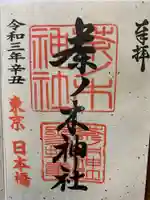 奉拝
茶ノ木神社
令和三年辛丑
東京 日本橋